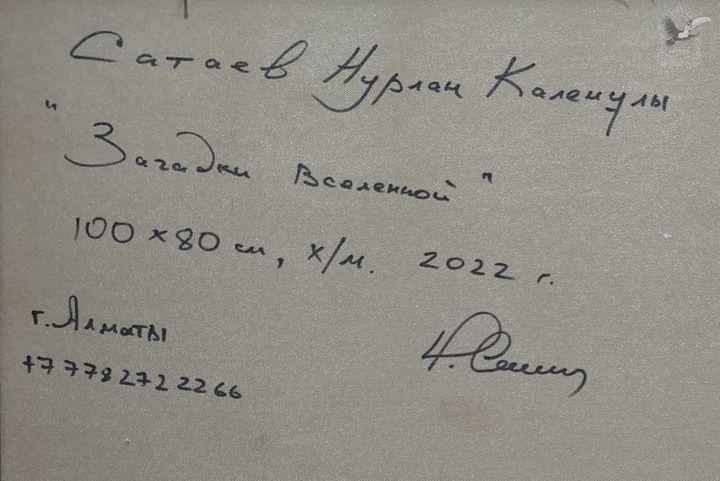 Сатаев Нурлан Каленулы
"Загадки Вселенной"
100 х 80 см, х/м. 2022 г.
г. Алматы
+77782722266